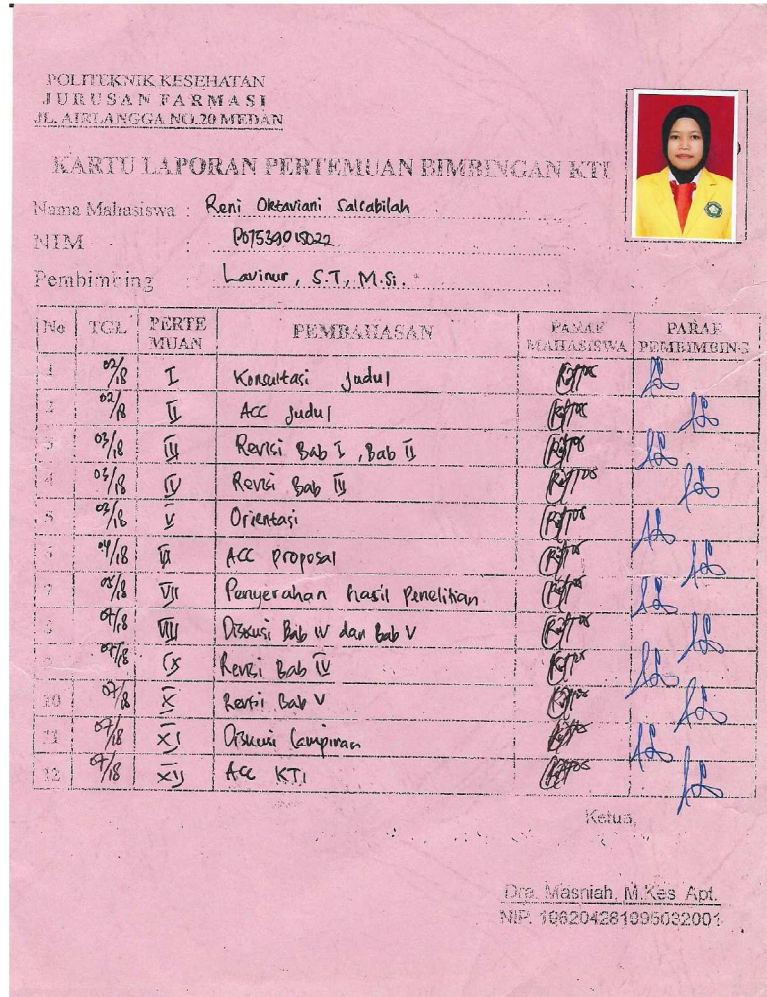 POLITEKNIK KESEHATAN
JURUSAN FARMASI
JL. AIRLANGGA NO.20 MEDAN
KARTU LAPORAN PERTEMUAN BIMBINGAN KTI
Nama Mahasiswa : Reni Oktaviani Salsabilah
NIM : P07539015022
Pembimbing : Lavinur, S.T, M.Si.
No TGL PERTE MUAN PEMBAHASAN PARAF MAHASISWA PARAF PEMBIMBING
1 02/18 I Konsultasi Judul
2 02/18 II ACC Judul
3 03/18 III Revisi Bab I, Bab II
4 03/18 IV Revisi Bab III
5 03/18 V Orientasi
6 04/18 VI ACC proposal
7 08/18 VII Penyerahan hasil Penelitian
8 07/18 VIII Diskusi Bab IV dan Bab V
9 07/18 IX Revisi Bab IV
10 07/18 X Revisi Bab V
11 07/18 XI Diskusi Lampiran
12 07/18 XII Acc KTI
Ketua,
Dra. Masniah, M.Kes Apt.
NIP. 196204281995032001